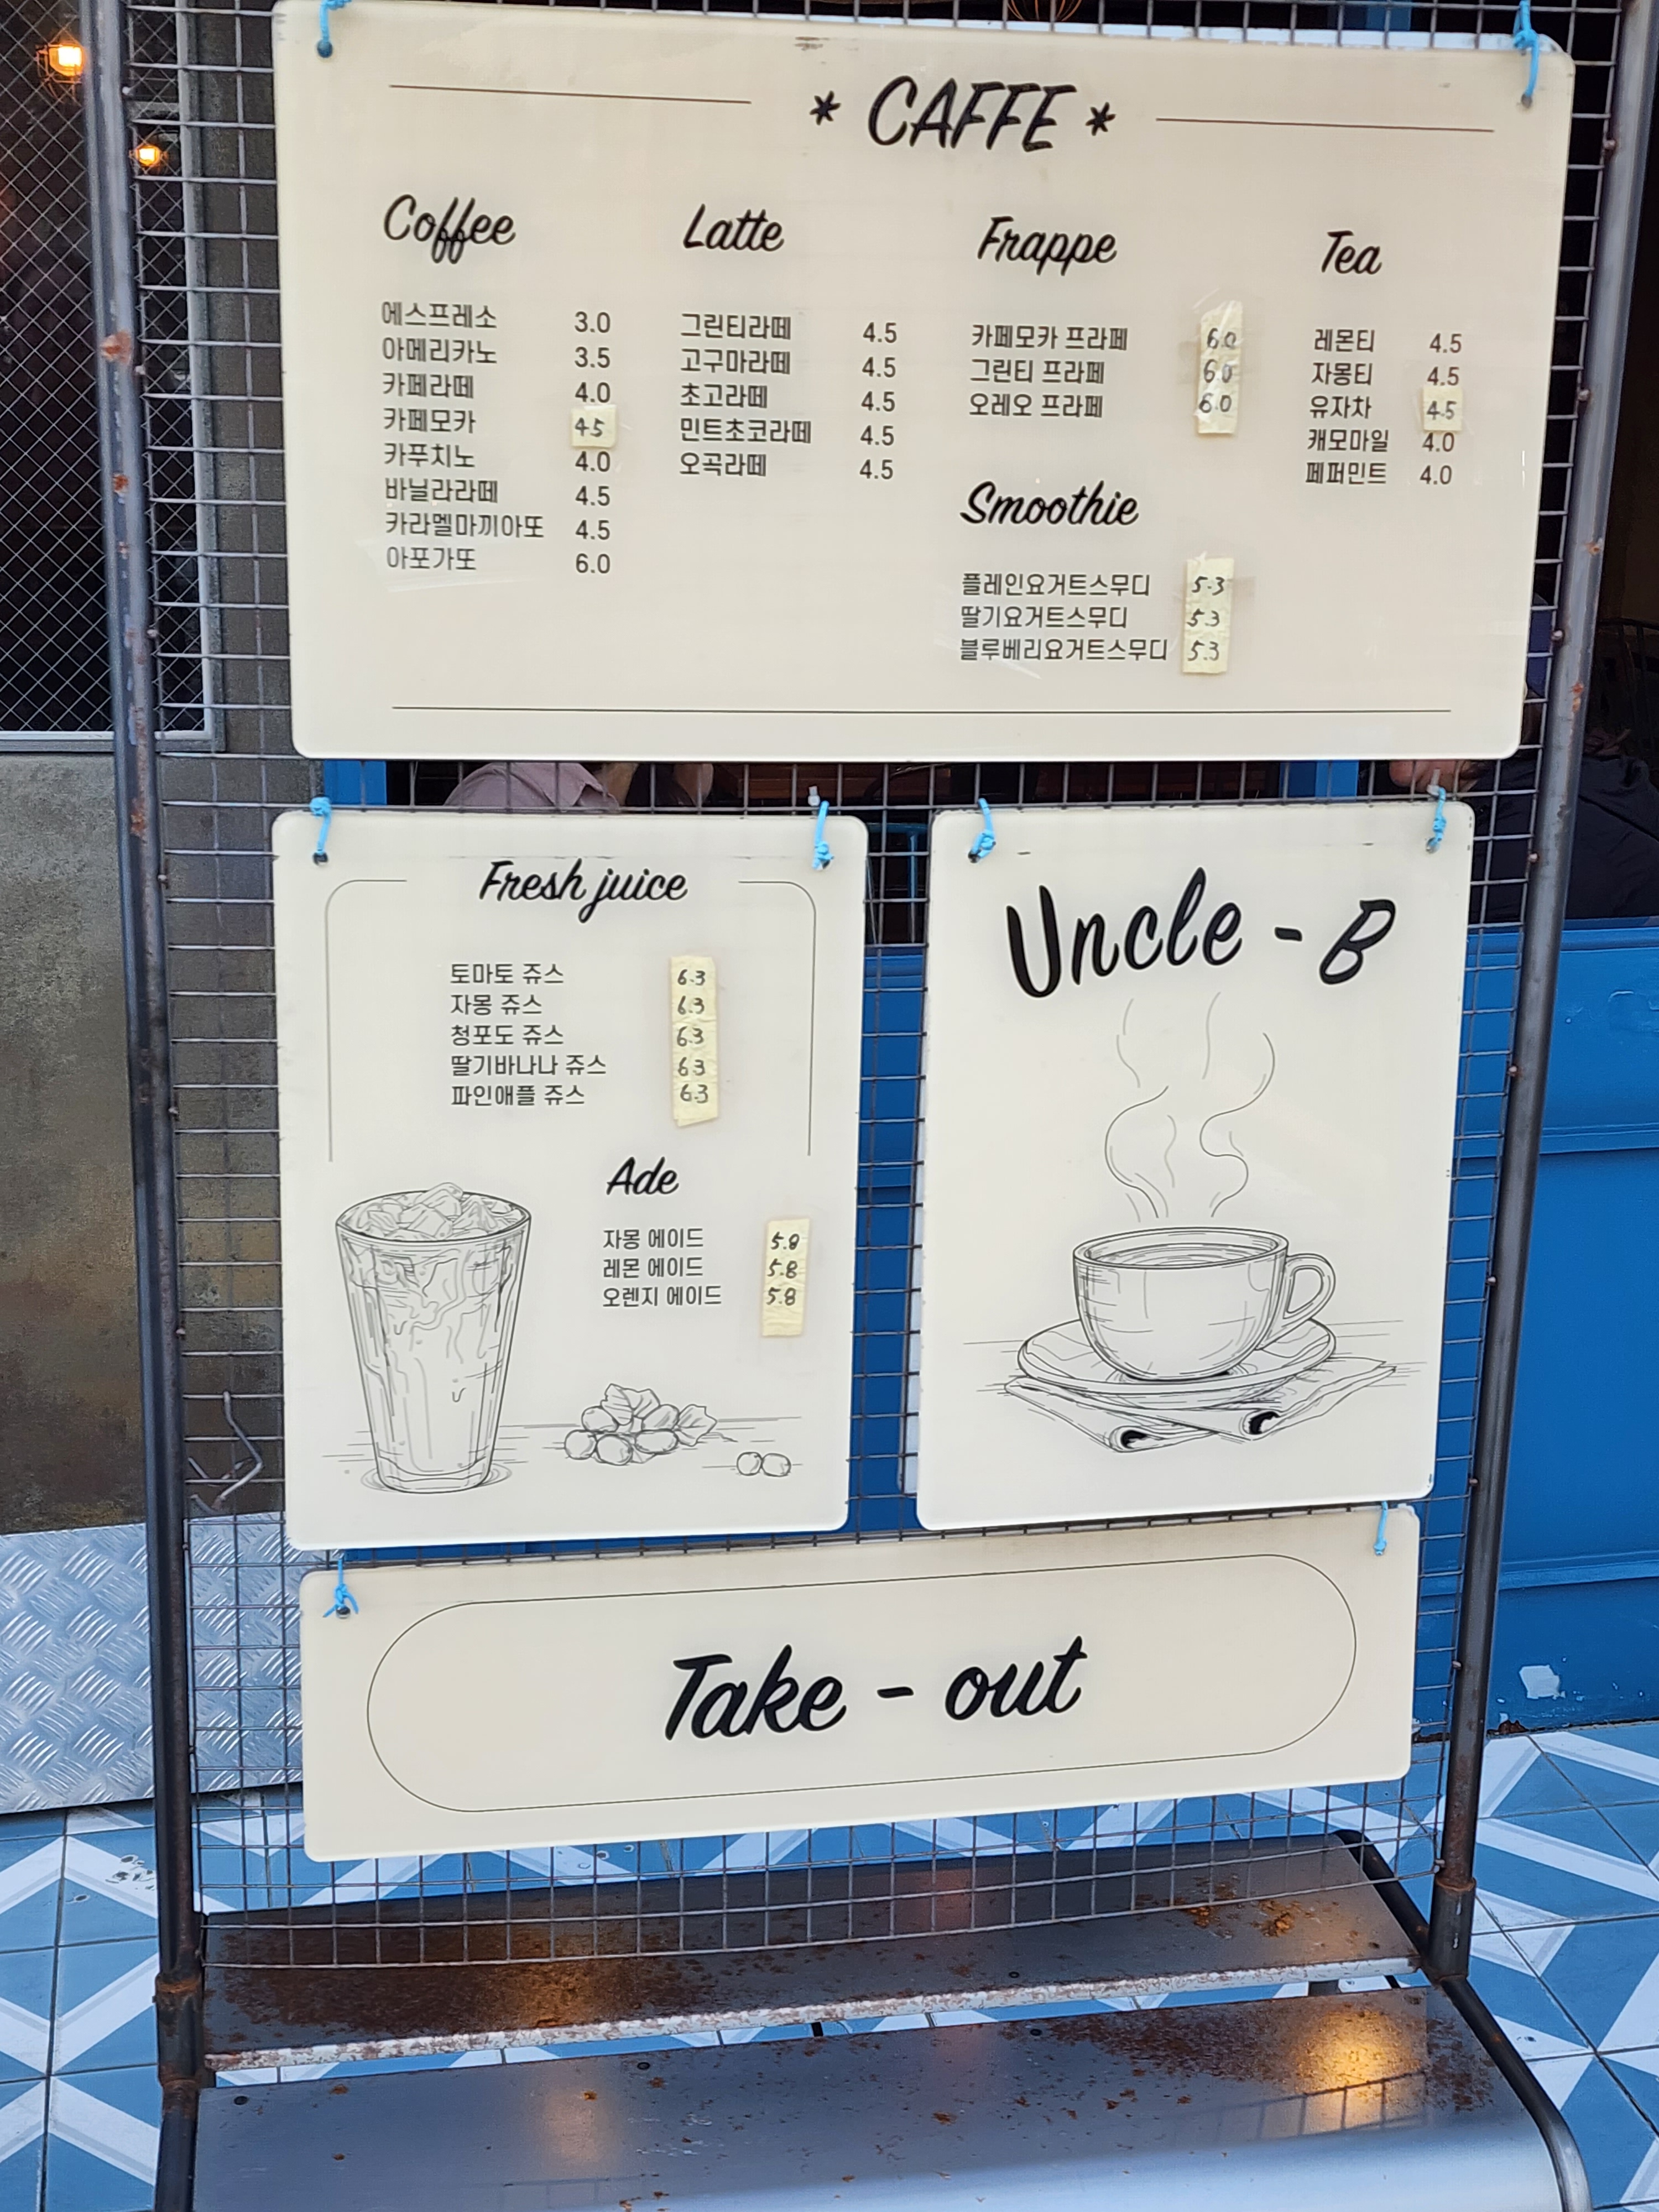 * CAFFE *
Coffee
에스프레소 3.0
아메리카노 3.5
카페라떼 4.0
카페모카 4.5
카푸치노 4.0
바닐라라떼 4.5
카라멜마끼아또 4.5
아포가또 6.0
Latte
그린티라떼 4.5
고구마라떼 4.5
초고라떼 4.5
민트초코라떼 4.5
오곡라떼 4.5
Frappe
카페모카 프라페 6.0
그린티 프라페 6.0
오레오 프라페 6.0
Smoothie
플레인요거트스무디 5.3
딸기요거트스무디 5.3
블루베리요거트스무디 5.3
Tea
레몬티 4.5
자몽티 4.5
유자차 4.5
캐모마일 4.0
페퍼민트 4.0
Fresh juice
토마토 쥬스 6.3
자몽 쥬스 6.3
청포도 쥬스 6.3
딸기바나나 쥬스 6.3
파인애플 쥬스 6.3
Ade
자몽 에이드 5.8
레몬 에이드 5.8
오렌지 에이드 5.8
Uncle - B
Take - out